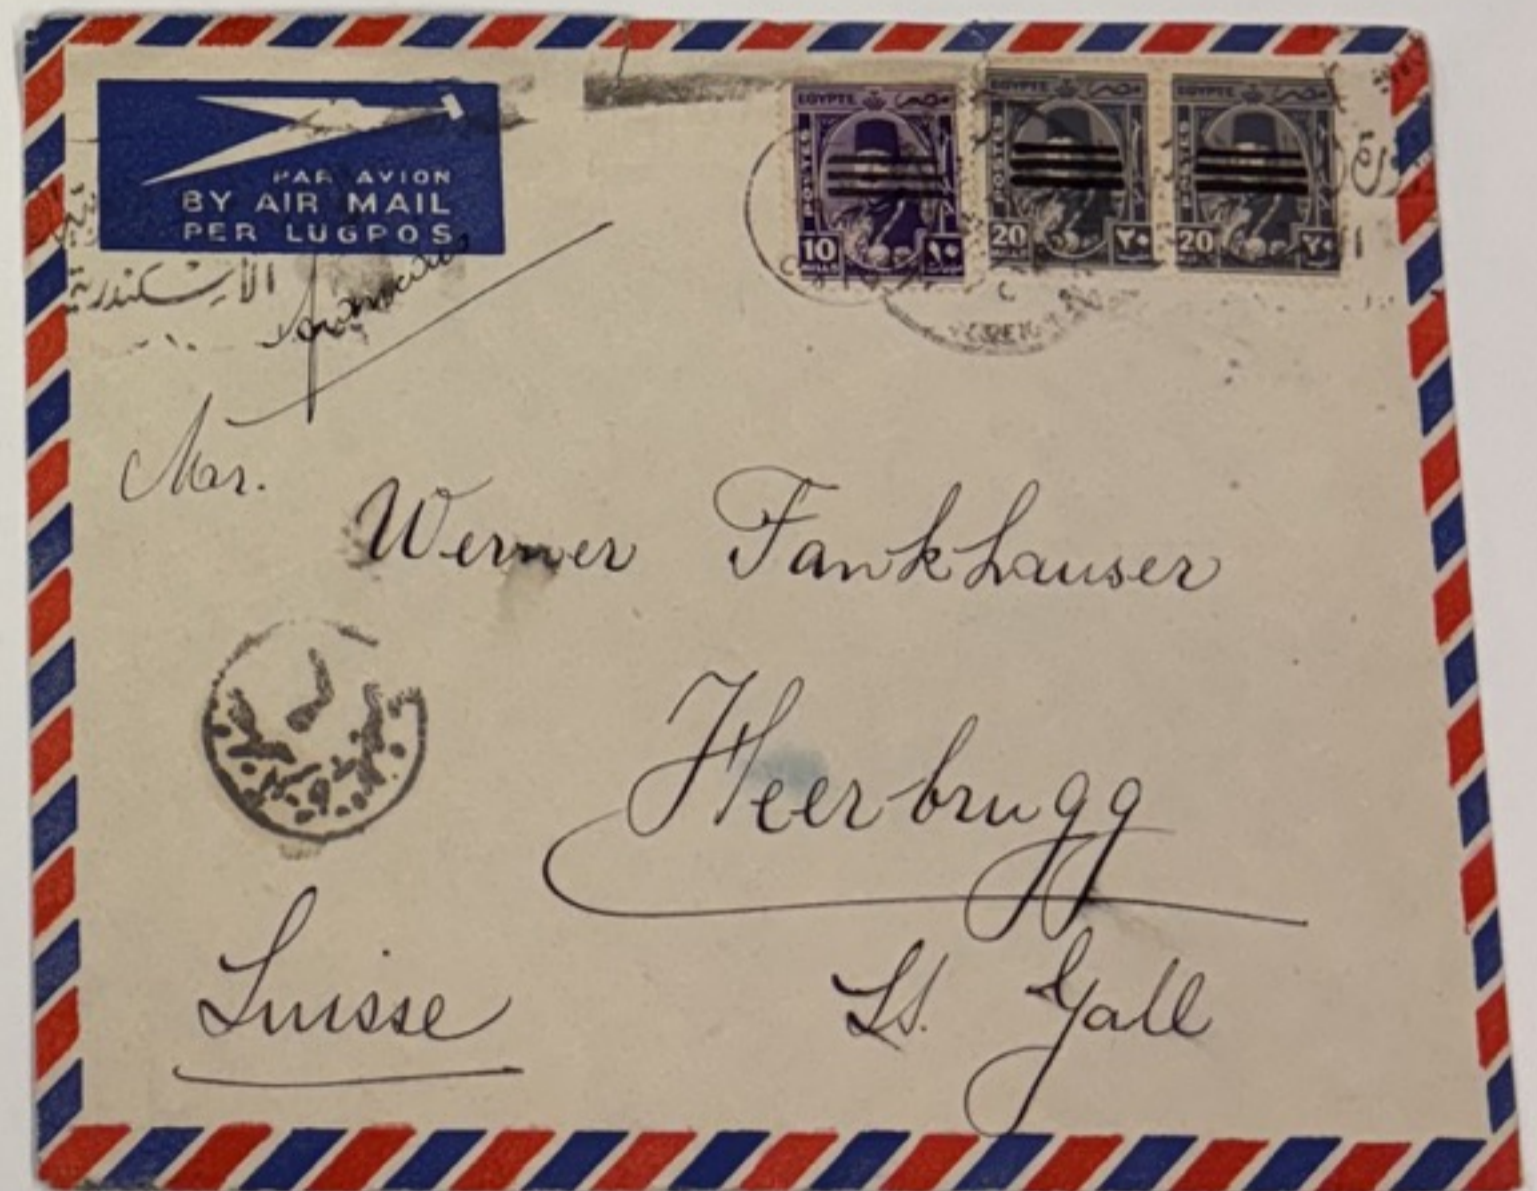 PAR AVION
BY AIR MAIL
PER LUGPOS
EGYPTE مصر
POSTES
10 ١٠
MILLS
EGYPTE مصر
POSTES
20 ٢٠
EGYPTE مصر
POSTES
20 ٢٠
الاسكندرية
Mr.
Werner Fankhauser
Heerbrugg
St. Gall
Suisse